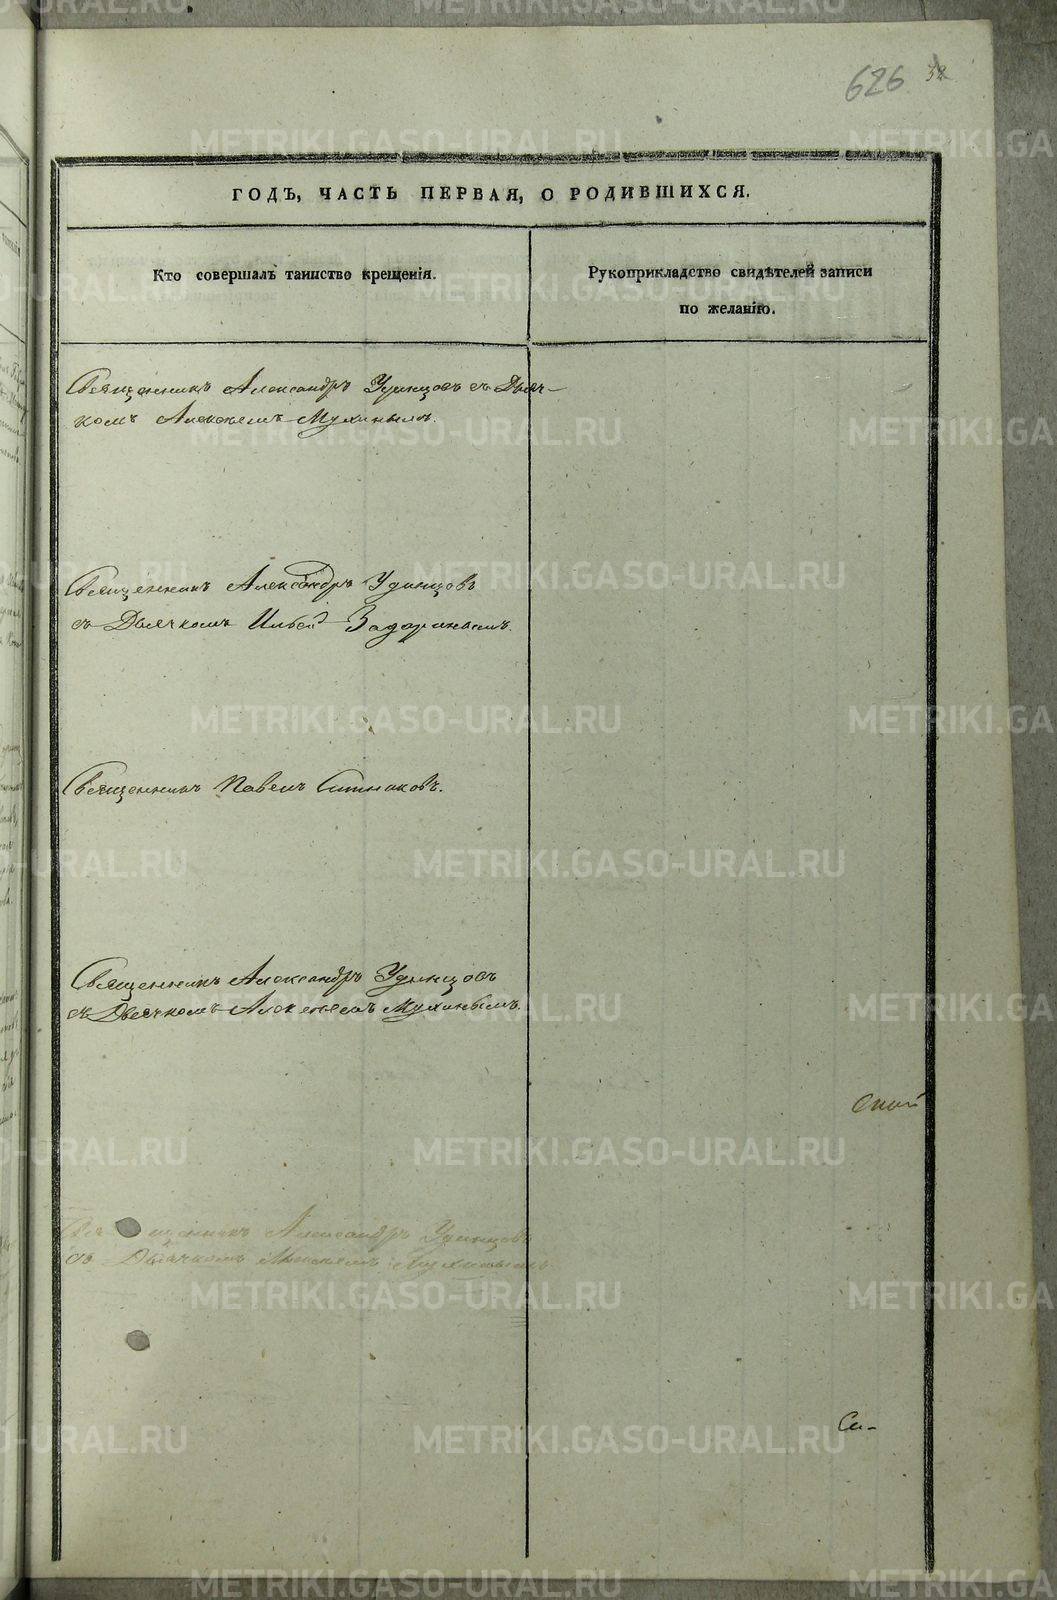 626 32
ГОДЪ, ЧАСТЬ ПЕРВАЯ, О РОДИВШИХСЯ.
Кто совершалъ таинство крещенія.
Рукоприкладство свидѣтелей записи
по желанію.
Священникъ Александръ Удинцовъ съ Дьяч-
комъ Алексѣемъ Мухинымъ.
Священникъ Александръ Удинцовъ
съ Дьячкомъ Ильей Задоринымъ.
Священникъ Павелъ Ситниковъ.
Священникъ Александръ Удинцовъ
съ Дьячкомъ Алексѣемъ Мухинымъ.
Священникъ Александръ Удинцовъ
съ Дьячкомъ Алексѣемъ Мухинымъ
Си-
METRIKI.GASO-URAL.RU